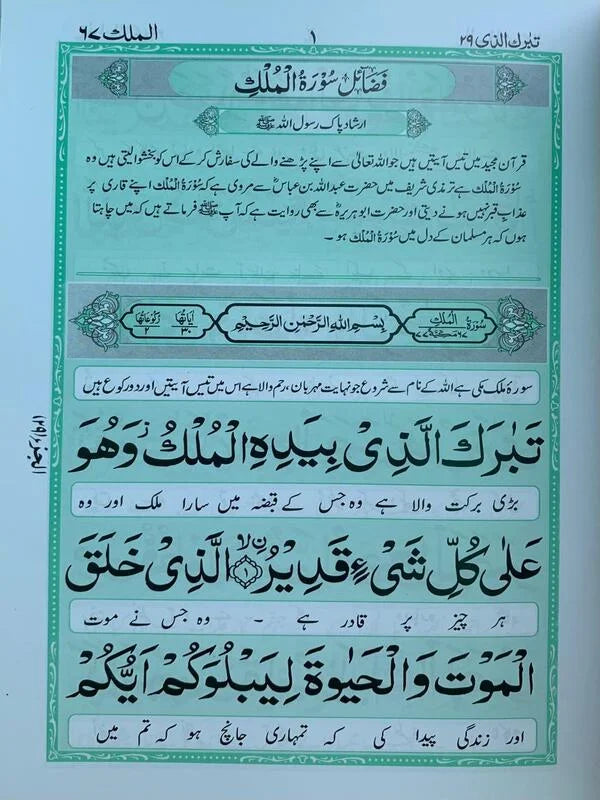 تبٰرك الذي ٢٩
١
الملك ٦٧
فَضَآئِل سُوْرَةُ الْمُلْكِ
ارشاد پاک رسول اللہ ﷺ
قرآن مجید میں تیس آیتیں ہیں جو اللہ تعالیٰ سے اپنے پڑھنے والے کی سفارش کر کے اس کو بخشوا لیتی ہیں وہ
سُوْرَةُ الْمُلْكُ ہے ترمذی شریف میں حضرت عبداللہ بن عباسؓ سے مروی ہے کہ سُوْرَةُ الْمُلْكُ اپنے قاری پر
عذاب قبر نہیں ہونے دیتی اور حضرت ابوہریرہؓ سے بھی روایت ہے کہ آپ ﷺ فرماتے ہیں کہ میں چاہتا
ہوں کہ ہر مسلمان کے دل میں سُوْرَةُ الْمُلْكُ ہو ۔
سُوْرَةُ الْمُلْكِ ٦٧ مَكِّيَّةٌ ٧٧
بِسْمِ اللهِ الرَّحْمٰنِ الرَّحِيْمِ
اٰيَاتُهَا ٣٠
رُكُوْعَاتُهَا ٢
سورۂ ملک مکی ہے اللہ کے نام سے شروع جو نہایت مہربان، رحم والا ہے اس میں تیس آیتیں اور دو رکوع ہیں
تَبٰرَكَ الَّذِيْ بِيَدِهِ الْمُلْكُ ز وَهُوَ
بڑی برکت والا ہے وہ جس کے قبضہ میں سارا ملک اور وہ
عَلٰى كُلِّ شَيْءٍ قَدِيْرُ ۨ ۙ ﴿١﴾ الَّذِيْ خَلَقَ
ہر چیز پر قادر ہے ۔ وہ جس نے موت
الْمَوْتَ وَالْحَيٰوةَ لِيَبْلُوَكُمْ اَيُّكُمْ
اور زندگی پیدا کی کہ تمہاری جانچ ہو کہ تم میں